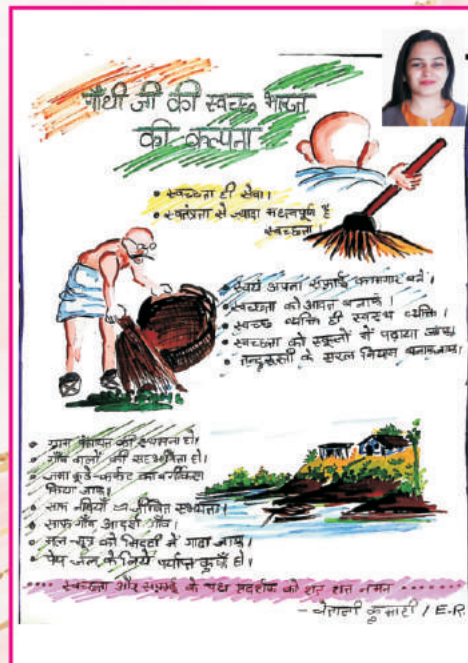 गाँधी जी की स्वच्छ भारत
की कल्पना
• स्वच्छता ही सेवा।
• स्वतंत्रता से ज्यादा महत्वपूर्ण है
स्वच्छता।
• स्वयं अपना सफाई कामगार बनें।
• स्वच्छता को आदत बनाएं।
• स्वच्छ व्यक्ति ही स्वस्थ व्यक्ति।
• स्वच्छता को स्कूलों में पढ़ाया जाए।
• तन्दुरुस्ती के सरल नियम बनाए जाए।
• ग्राम पंचायत की स्थापना हो।
• गाँव वालों की सहभागिता हो।
• जमा कूड़े-कर्कट का वर्गीकरण
किया जाए।
• साफ नदियाँ जीवित सभ्यता।
• साफ गाँव आदर्श गाँव।
• मल मूत्र को मिट्टी में गाढ़ा जाए।
• पेय जल के लिये पर्याप्त कुएँ हो।
स्वच्छता और सफाई के पथ प्रदर्शक को शत शत नमन
- कुमारी / E.R.